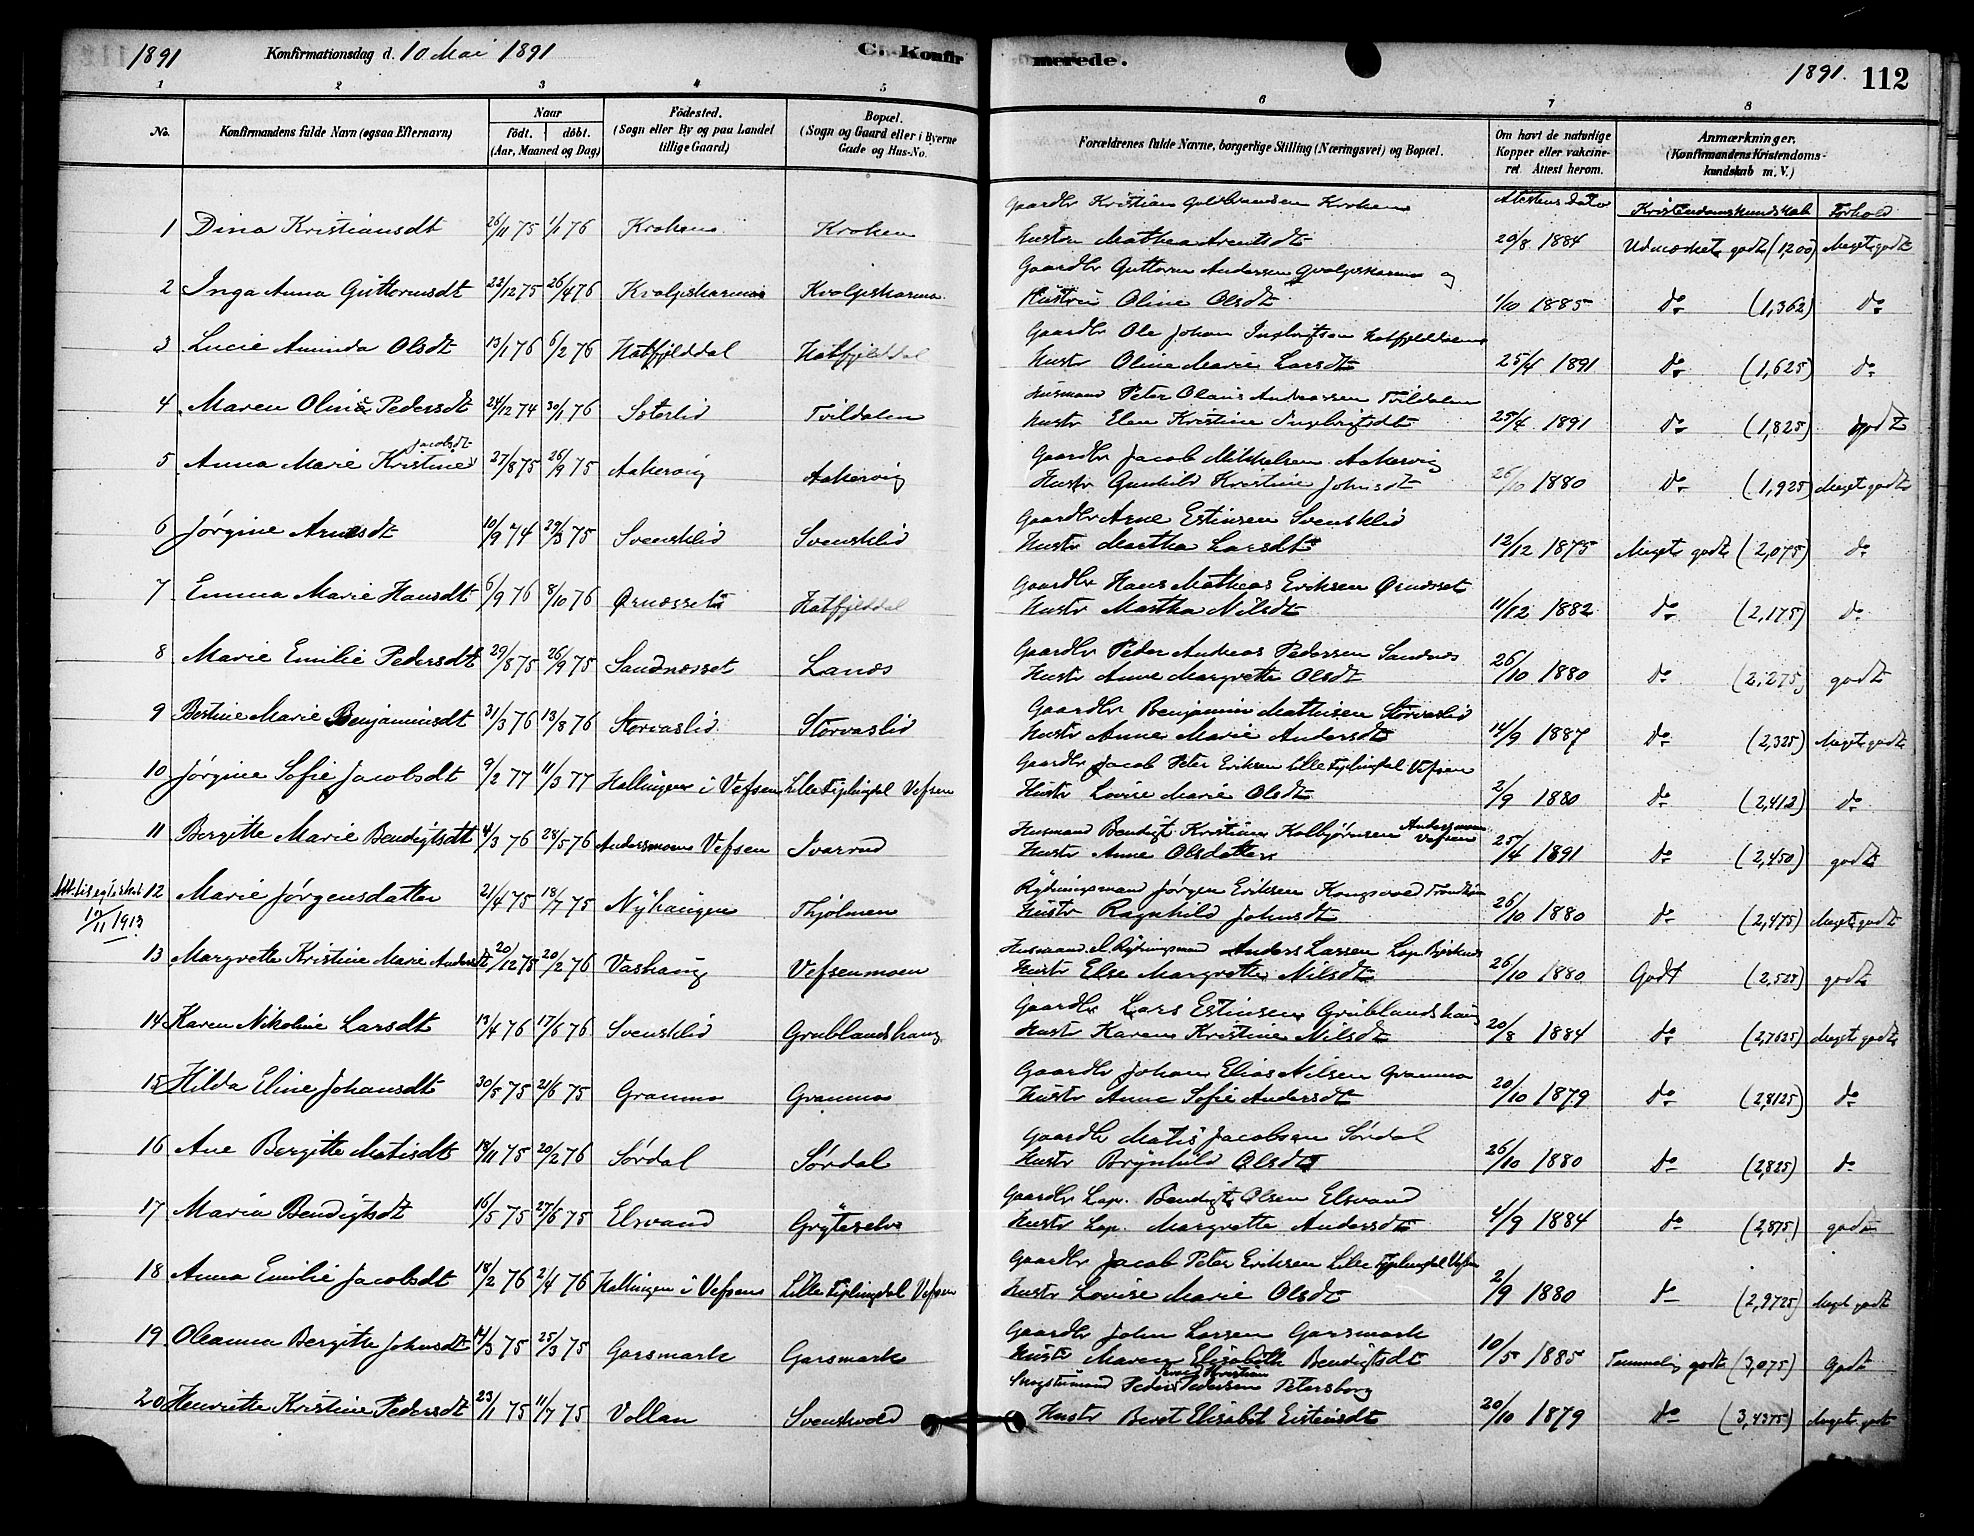 1891
Konfirmationsdag d. 10 Mai 1891
C. Konfirmerede.
1891.
112
1 2 3 4 5 6 7 8
No.
Konfirmandens fulde Navn (ogsaa Efternavn)
Naar
født. døbt.
(Aar, Maaned og Dag)
Födested.
(Sogn eller By og paa Landet
tillige Gaard)
Bopæl.
(Sogn og Gaard eller i Byerne
Gade og Hus-No.
Forældrenes fulde Navne, borgerlige Stilling (Næringsvei) og Bopæl.
Om havt de naturlige
Kopper eller vakcine-
ret Attest herom.
Anmærkninger.
(Konfirmandens Kristendoms-
kundskab m. V.)
Attestens Dato
Kristendomskundskab Forhold
Gaardbr Kristian Krohen
1 Dina Kristiansdt 26/11 75 1/1 76 Krohen Krohen Hustru Mathea Arntsdt 20/8 1884 Udmærket godt (1,200) Meget godt
Gaardbr Guttorm Andersen og
2 Inga Anna Guttormsdt 22/12 75 26/4 76 Hustru Oline Olsdt 1/10 1885 do (1,362) do
Gaardbr Ole Johan
3 Lucie Aminda Olsdt 13/1 76 6/2 76 Hatfjelddal Hatfjelddal Hustr Oline Marie Larsdt 25/4 1891 do (1,625) do
Husmand Peter Olaus Andreassen Tvildalen
4 Maren Oline Pedersdt 24/12 74 30/1 76 Tvildalen Hustr Elen Kristine Ingebrigtsdt 25/4 1891 do (1,825) godt
Gaardbr Jacob Mikkelsen Aakervig
5 Anna Marie Kristine Jacobsdt 27/8 75 26/9 75 Aakervig Aakervig Hustr Gunhild Kristine Johnsdt 26/10 1880 do (1,925) Meget godt
Gaardbr Arne Estinsen Svensklid
6 Jørgine Arnesdt 10/9 74 29/3 75 Svensklid Svensklid Hustr Martha Larsdt 12/12 1875 Meget godt (2,075) do
Gaardbr Hans Mathias Eriksen Ørnesset
7 Emma Marie Hansdt 6/9 76 8/10 76 Ørnæsset Hatfjelddal Hustr Martha Nilsdt 11/12 1882 do (2,175) do
Gaardbr Peder Andreas Pedersen Sandnes
8 Marie Emilie Pedersdt 29/8 75 26/9 75 Sandnæsset Hustr Anne Margrette Olsdt 26/10 1880 do (2,275) godt
Gaardbr Benjamin Mathisen Storvaslid
9 Bertine Marie Benjaminsdt 31/3 76 13/8 76 Storvaslid Storvaslid Hustr Anne Marie Andersdt 14/9 1887 do (2,325) Meget godt
Gaardbr Jacob Peter Eriksen Lille Fiplingdal Vefsen
10 Jørgine Sofie Jacobsdt 9/2 77 11/3 77 Hallingen i Vefsen Lille Fiplingdal Vefsen Hustr Lovise Marie Olsdt 2/9 1880 do (2,412) do
Husmand Bendigt Kristian Kolbjørnsen Andersmoen Vefsen
11 Bergitte Marie Bendigtsdt 4/3 76 28/5 76 Andersmoen Vefsen Ivarrud Hustr Anne Olsdatter 25/4 1891 do (2,450) godt
Rydningsmand Jørgen Eriksen
12 Marie Jørgensdatter 21/4 75 18/7 75 Nyhaugen Thjølmen Hustr Ragnhild Johnsdt 26/10 1880 do (2,475) Meget godt
10/11 1913
Husmand el. Rydningsmand Anders Larsen Lap
13 Margrette Kristine Marie Andersdt 20/12 75 20/2 76 Vashaug Vefsenmoen Hustr Else Margrette Nilsdt 26/10 1880 Godt (2,525) godt
Gaardbr Lars Estinsen Grublandshaug
14 Karen Nikoline Larsdt 13/4 76 17/6 76 Svensklid Grublandshaug Hustr Karen Kristine Nilsdt 20/8 1884 do (2,7625) Meget godt
Gaardbr Johan Elias Nilsen Granmo
15 Hilda Eline Johansdt 30/5 75 21/6 75 Granmo Granmo Hustr Anne Sofie Andersdt 20/10 1879 do (2,8125) do
Gaardbr Matis Jacobsen Sørdal
16 Ane Bergitte Matisdt 18/11 75 20/2 76 Sørdal Sørdal Hustr Brynhild Olsdt 26/10 1880 do (2,825) do
Gaardbr Lap. Bendigt Olsen Elsvand
17 Maria Bendigtsdt 16/5 75 27/6 75 Elsvand Gryteselv Hustr Lap. Margrette Andersdt 4/9 1884 do (2,875) godt
Gaardbr Jacob Peter Eriksen Lille Fiplingdal Vefsen
18 Anna Emilie Jacobsdt 18/2 76 2/4 76 Hallingen i Vefsen Lille Fiplingdal Vefsen Hustr Lovise Marie Olsdt 2/9 1880 do (2,9725) Meget godt
Gaardbr John Larsen Garsmark
19 Oleanna Bergitte Johnsdt 14/3 75 25/3 75 Garsmark Garsmark Hustr Maren Elisabeth Bendigtsdt 10/5 1885 Temmelig godt (3,075) Godt
Peder Kristian Pedersen Petersborg
20 Henriette Kristine Pedersdt 23/1 75 11/7 75 Vollan Svenskvold Hustr Beret Elisabet Eistensdt 20/10 1879 do (3,4375) Meget godt